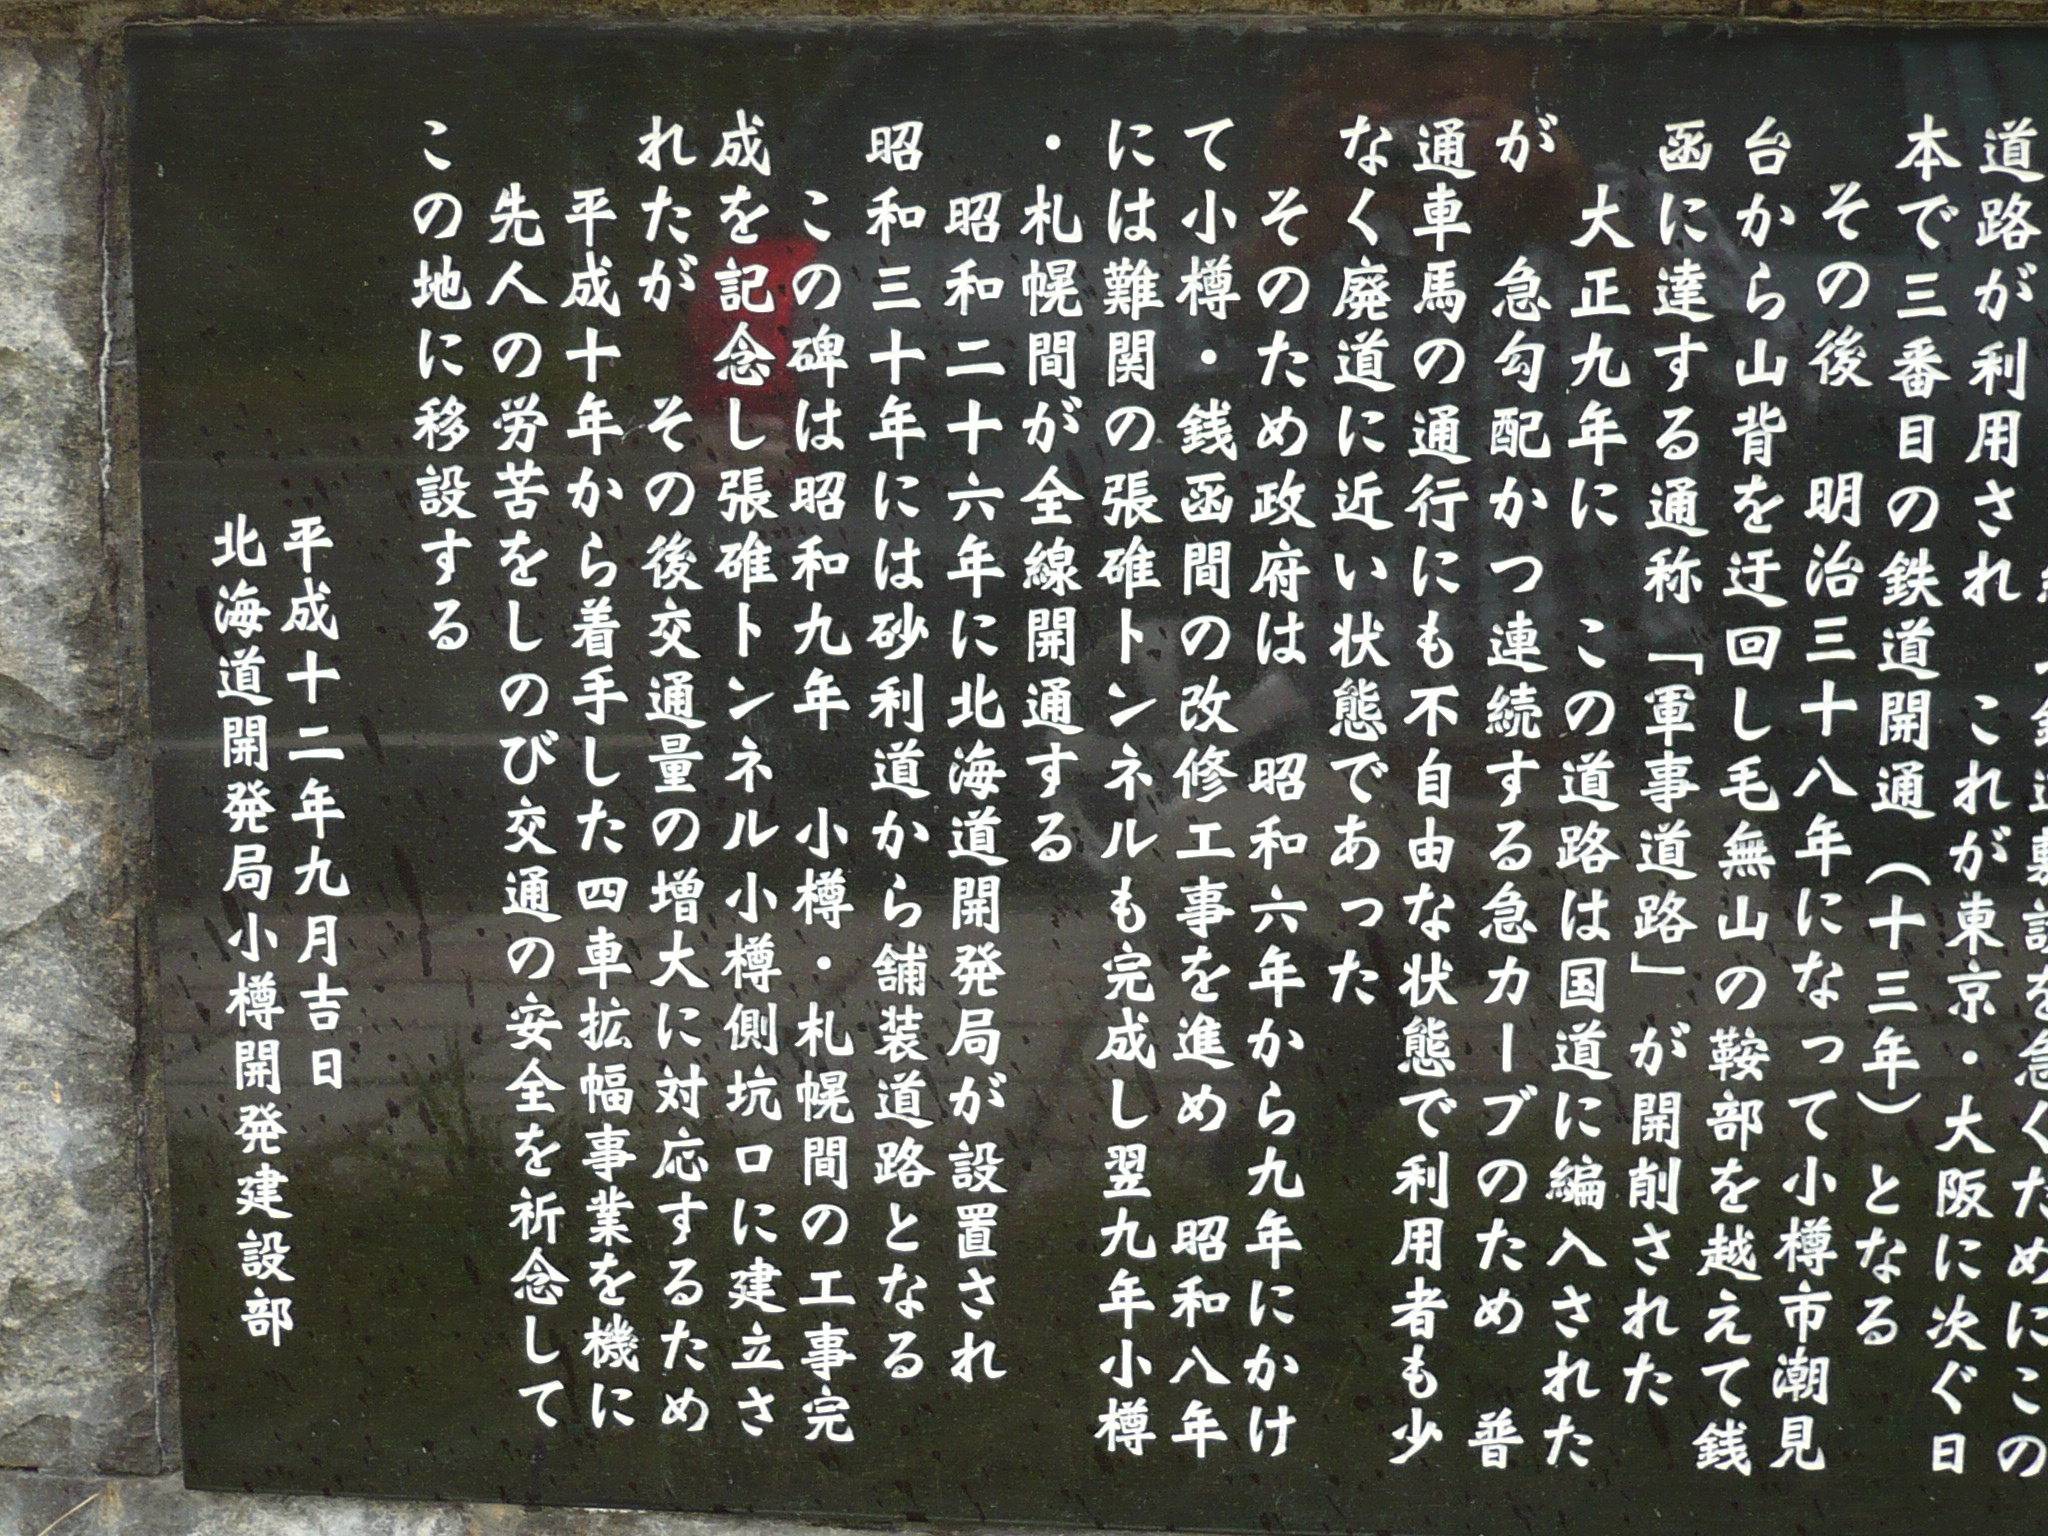 道敷設を急ぐためにこの
道路が利用され　これが東京・大阪に次ぐ日
本で三番目の鉄道開通（十三年）となる
その後　明治三十八年になって小樽市潮見
台から山背を迂回し毛無山の鞍部を越えて銭
函に達する通称「軍事道路」が開削された
大正九年に　この道路は国道に編入された
が　急勾配かつ連続する急カーブのため　普
通車馬の通行にも不自由な状態で利用者も少
なく廃道に近い状態であった
そのため政府は　昭和六年から九年にかけ
て小樽・銭函間の改修工事を進め　昭和八年
には難関の張碓トンネルも完成し翌九年小樽
・札幌間が全線開通する
昭和二十六年に北海道開発局が設置され
昭和三十年には砂利道から舗装道路となる
この碑は昭和九年　小樽・札幌間の工事完
成を記念し張碓トンネル小樽側坑口に建立さ
れたが　その後交通量の増大に対応するため
平成十年から着手した四車拡幅事業を機に
先人の労苦をしのび交通の安全を祈念して
この地に移設する
平成十二年九月吉日
北海道開発局小樽開発建設部